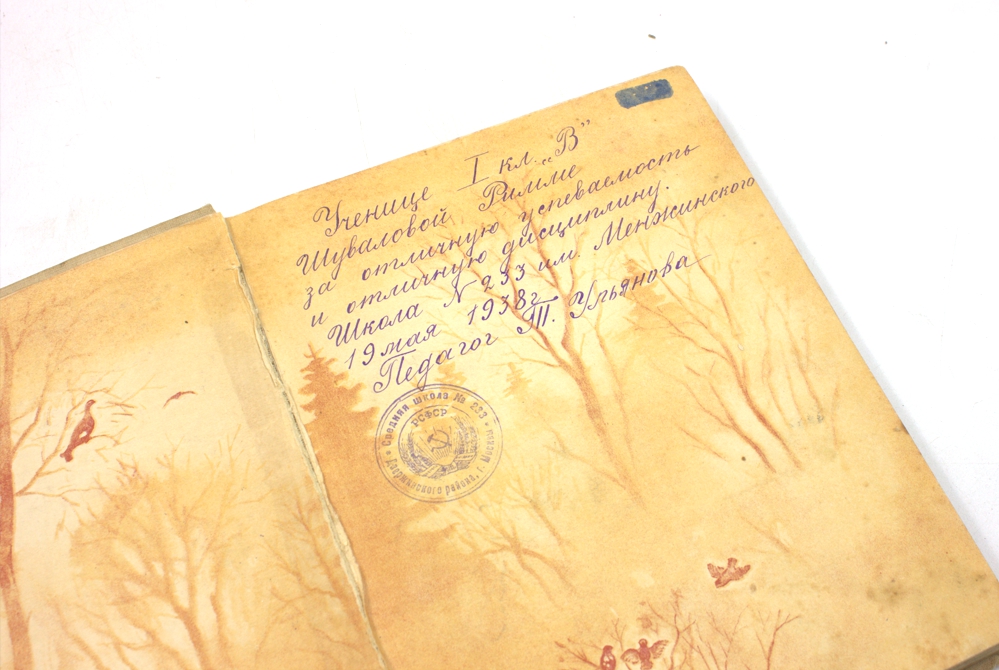 Ученице I кл. „В”
Шуваловой Римме
за отличную успеваемость
и отличную дисциплину.
Школа N 233 им. Менжинского
19 мая 1938 г.
Педагог Т. Ульянова
Средняя школа № 233
Дзержинского района, г. Москвы
РСФСР